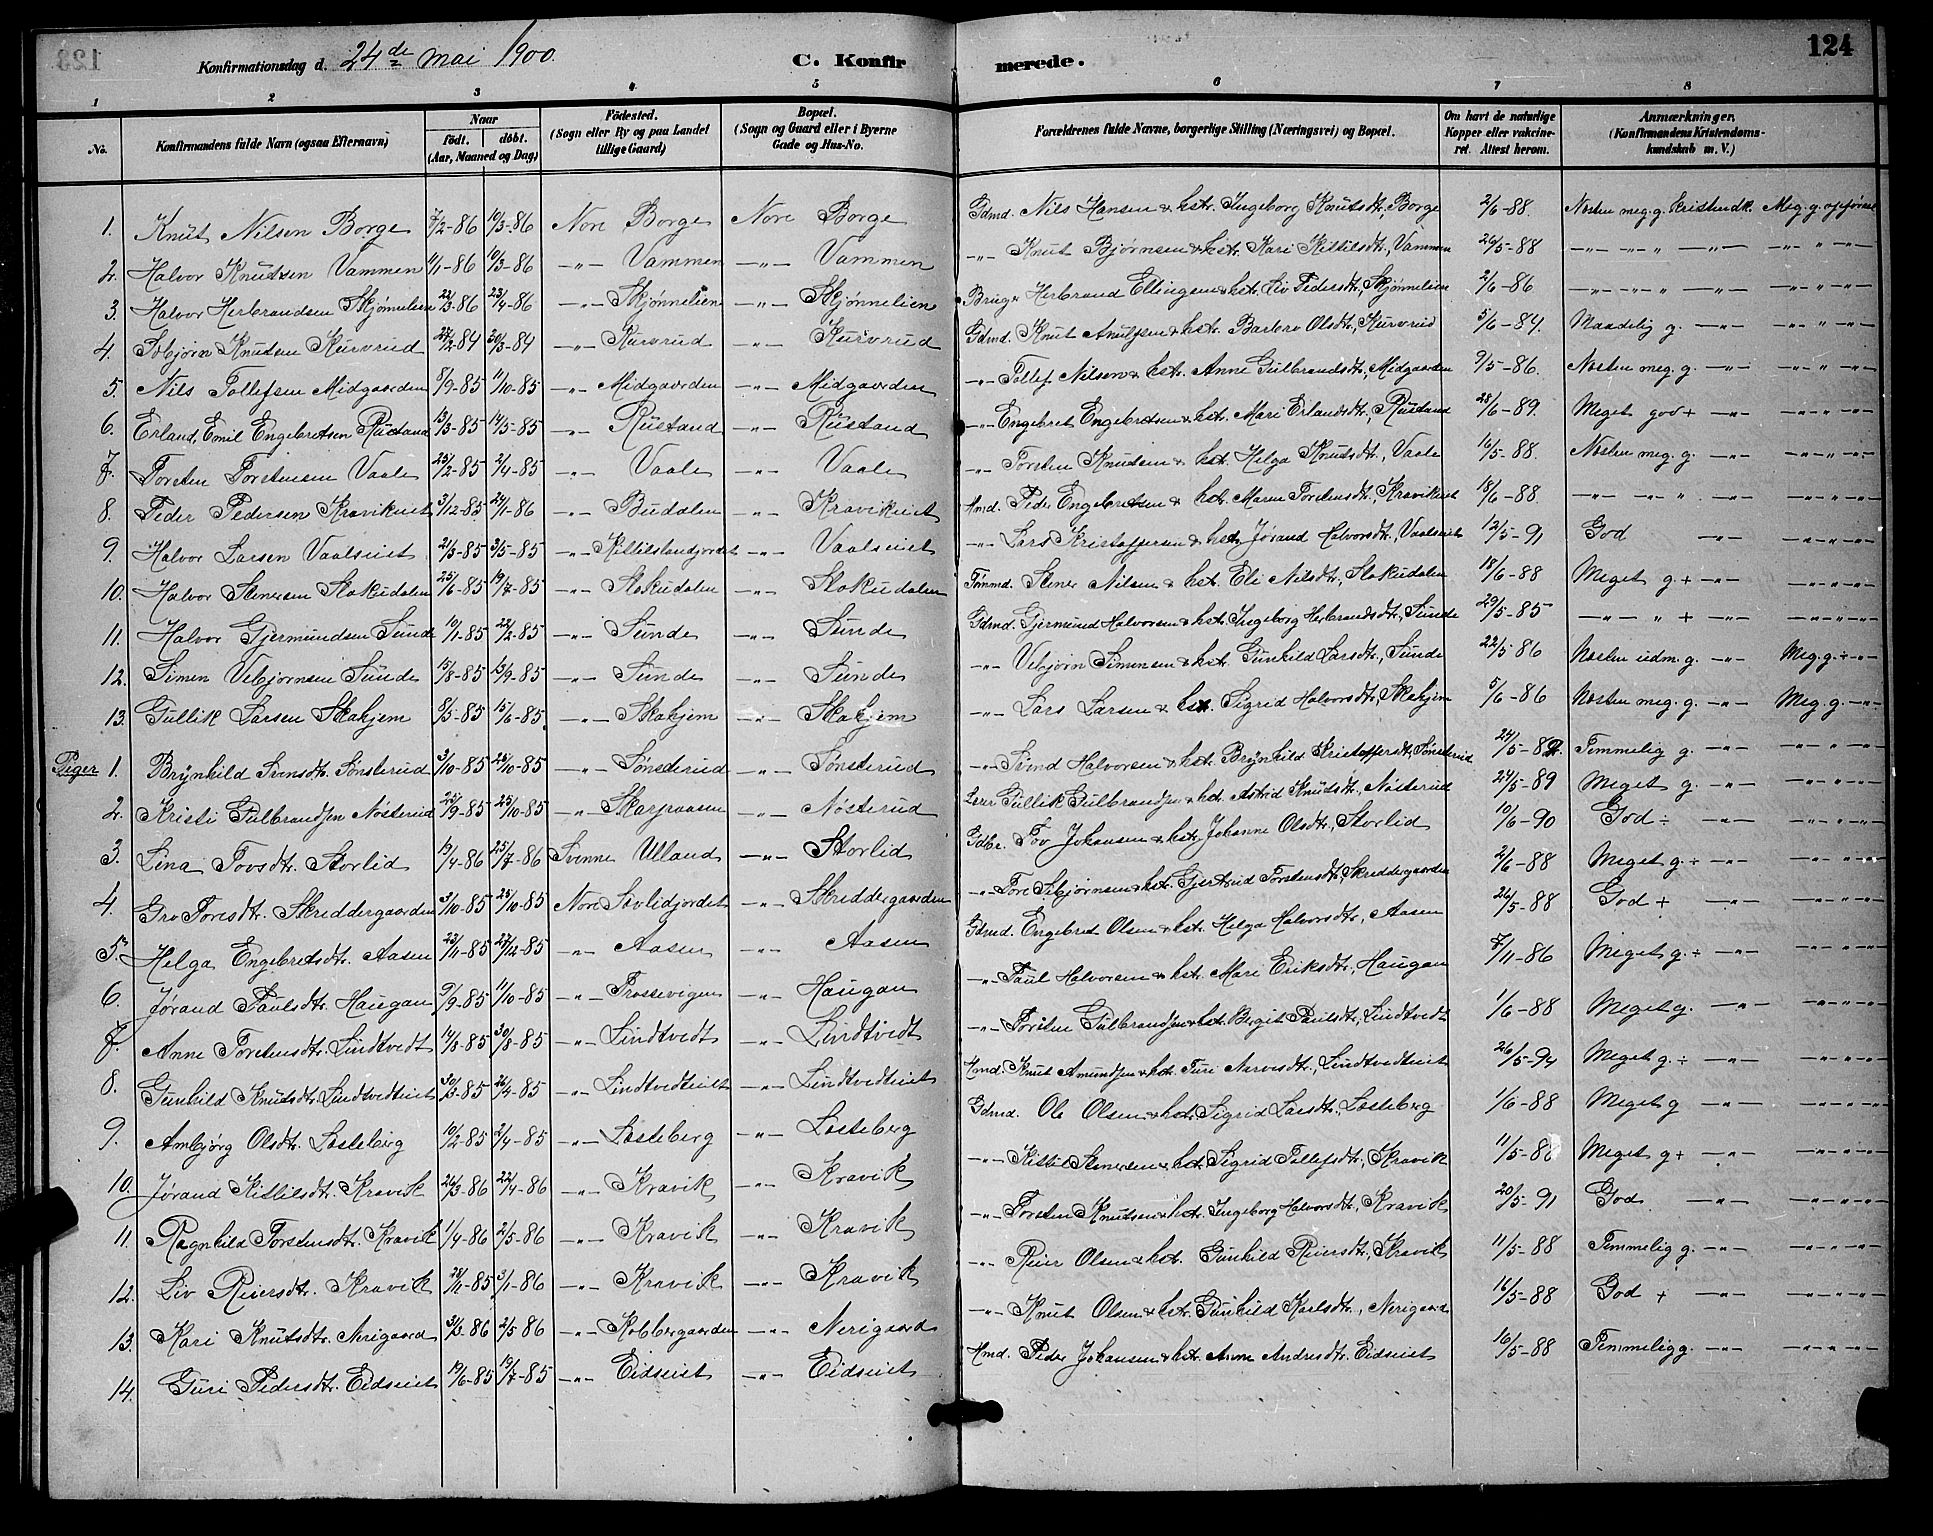 123
Konfirmationsdag d. 24de Mai 1900.
C. Konfirmerede.
124
1 2 3 4 5 6 7 8
No. Konfirmandens fulde Navn (ogsaa Efternavn) Naar født. døbt. (Aar, Maaned og Dag) Fødested. (Sogn eller By og paa Landet tillige Gaard) Bopæl. (Sogn og Gaard eller i Byerne Gade og Hus-No. Forældrenes fulde Navne, borgerlige Stilling (Næringsvei) og Bopæl. Om havt de naturlige Kopper eller vakcineret. Attest herom. Anmærkninger. (Konfirmandens Kristendomskundskab m. V.)
1. Knut Nilsen Borge 7/2-86 10/3-86 Nore Borge Nore Borge Gdmd. Nils Hansen & hstr. Ingeborg Knutsdtr., Borge 2/6-88. Næsten meg. g. kristendk. Meg. g.
2. Halvor Knutsen Vammen 11/1-86 10/3-86 -"- Vammen -"- Vammen -"- Knut Bjørnsen & hstr. Kari Kittilsdtr., Vammen 26/5-88 -"- -"- " -"- -"- " -"-
3. Halvor Herbrandsen Skjønnelien 22/3-86 23/4-86 -"- Skjønnelien -"- Skjønnelien Bruger Herbrand Ellingsen & hstr. Liv Pedersdtr., Skjønnelien 2/6-86 -"- -"- " -"- -"- " -"-
4. Asbjørn Knutsen Kurvrud 27/2-84 30/3-84 -"- Kurvrud -"- Kurvrud Gdmd. Knut Anulfsen & hstr. Barbro Olsdtr., Kurvrud 5/6-84. Maadelig g. -"- -"- " -"-
5. Nils Tollefsen Midgaarden 8/9-85 11/10-85 -"- Midgaarden -"- Midgaarden -"- Tollef Nilsen & hstr. Anne Gulbrandsdtr., Midgaarden 9/5-86. Næsten meg. g. -"- -"- " -"-
6. Erland Emil Engebretsen Rustand 13/3-85 14/5-85 -"- Rustand -"- Rustand -"- Engebret Engebretsen & hstr. Mari Erlandsdtr., Rustand 28/6-89. Meget god + -"- -"- " -"-
7. Torsten Torstensen Vaale 25/2-85 2/4-85 -"- Vaale -"- Vaale -"- Torsten Knudsen & hstr. Helga Knudsdtr., Vaale 16/5-88. Næsten meg. g. -"- -"- " -"-
8. Peder Pedersen Kravikeiet 3/12-85 24/1-86 -"- Budalen -"- Kravikeiet Hmd. Peder Engebretsen & hstr. Maren Torstensdtr., Kravikeiet 18/6-88. -"- -"- " -"- -"- " -"-
9. Halvor Larsen Vaalseiet 21/3-85 3/5-85 -"- Kittilslandjordet -"- Vaalseiet -"- Lars Kristoffersen & hstr. Jørand Halvorsdtr., Vaalseiet 12/5-91 God -"- -"- " -"-
10. Halvor Stenersen Stokudalen 25/6-85 19/7-85 -"- Stokudalen -"- Stokudalen Tømmd. Stener Nilsen & hstr. Eli Nilsdtr., Stokudalen 18/6-88 Meget g. + -"- -"- " -"-
11. Halvor Gjermundsen Sunde 10/1-85 22/2-85 -"- Sunde -"- Sunde Gdmd. Gjermund Halvorsen & hstr. Ingeborg Herbrandsdtr., Sunde 29/5-85 -"- " + -"- -"- " -"-
12. Simen Vebjørnsen Sunde 15/8-85 13/9-85 -"- Sunde -"- Sunde -"- Vebjørn Simensen & hstr. Gunhild Larsdtr., Sunde 22/5-86 Næsten udm. g. -"- Meg. g. ÷ -"-
13. Gullik Larsen Skakjem 8/5-85 15/6-85 -"- Skakjem -"- Skakjem -"- Lars Larsen & hstr. Sigrid Halvorsdtr., Skakjem 5/6-86 Næsten meg. g. -"- Meg. g. -"-
Piger 1. Brynhild Svensdtr. Sønsterud 3/10-85 25/10-85 -"- Sønsterud -"- Sønsterud -"- Svend Halvorsen & hstr. Brynhild Kristoffersdtr., Sønsterud 24/5-89. Temmelig g. -"- -"- " -"-
2. Kristi Gulbrandsen Nøsterud 25/9-85 25/10-85 -"- Skarpaasen -"- Nøsterud Lærer Gullik Gulbrandsen & hstr. Astrid Knudsdtr., Nøsterud 24/5-89 Meget g. -"- -"- " -"-
3. Lina Tovsdtr. Storlid 13/4-86 25/7-86 Svenne Ulland -"- Storlid Gdbr. Tov Johansen & hstr. Johanne Olsdtr., Storlid 10/6-90 God ÷ -"- -"- " -"-
4. Gro Toresdtr. Skreddergaarden 3/10-85 25/10-85 Nore Sevlidjordet -"- Skreddergaarden -"- Tore Asbjørnsen & hstr. Gjertrud Torstensdtr., Skreddergaarden 2/6-88 Meget g. ÷ -"- -"- " -"-
5. Helga Engebretsdtr. Aasen 23/11-85 27/12-85 -"- Aasen -"- Aasen Gdmd. Engebret Olsen & hstr. Helga Halvorsdtr., Aasen 26/5-88 God + -"- -"- " -"-
6. Jørand Paulsdtr. Haugan 9/9-85 11/10-85 -"- Frossevigen -"- Haugan -"- Paul Halvorsen & hstr. Mari Eriksdtr., Haugan 7/11-86 Meget g. ÷ -"- -"- " -"-
7. Anne Torstensdtr. Lindtvedt 14/8-85 30/8-85 -"- Lindtvedt -"- Lindtvedt -"- Torsten Gulbrandsen & hstr. Bergit Paulsdtr., Lindtvedt 1/6-88 Meget g. -"- -"- " -"-
8. Gunhild Knutsdtr. Lindtvedteiet 30/3-85 26/4-85 -"- Lindtvedteiet -"- Lindtvedteiet Hmd. Knut Amundsen & hstr. Turi Narvesdtr., Lindtvedteiet 26/5-94 Meget g. ÷ -"- -"- " -"-
9. Ambjørg Olsdtr. Losteberg 10/2-85 2/4-85 -"- Losteberg -"- Losteberg Gdmd. Ole Olsen & hstr. Sigrid Larsdtr., Losteberg 1/6-88 Meget g -"- -"- " -"-
10. Jørand Kittilsdtr. Kravik 26/3-86 22/4-86 -"- Kravik -"- Kravik -"- Kittil Stenersen & hstr. Sigrid Tollefsdtr., Kravik 11/5-88 Meget g + -"- -"- " -"-
11. Ragnhild Torstensdtr. Kravik 1/4-86 2/5-86 -"- Kravik -"- Kravik -"- Torsten Knutsen & hstr. Ingeborg Halvorsdtr., Kravik 20/5-91 God -"- -"- " -"-
12. Liv Reiersdtr. Kravik 28/11-85 3/1-86 -"- Kravik -"- Kravik -"- Reier Olsen & hstr. Gunhild Reiersdtr., Kravik 11/5-88 Temmelig g. -"- -"- " -"-
13. Kari Knutsdtr. Nerigaard 31/3-86 2/5-86 -"- Kobbergaarden -"- Nerigaard -"- Knut Olsen & hstr. Gunhild Karlsdtr., Nerigaard 16/5-88 God + -"- -"- " -"-
14. Guri Pedersdtr. Eidseiet 19/6-85 19/7-85 -"- Eidseiet -"- Eidseiet Hmd. Peder Johansen & hstr. Anne Andersdtr. Eidseiet 16/5-88 Temmelig g. -"- -"- " -"-